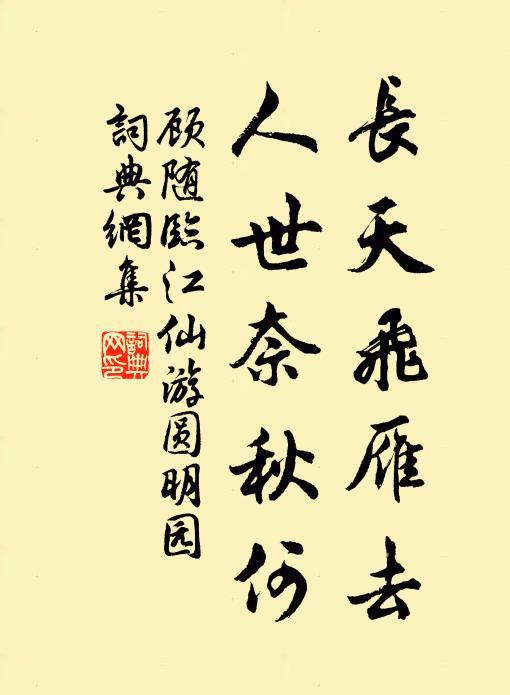 長天飛雁去
人世奈秋何
顾随臨江仙游圆明园
詞典網集
詞典网印